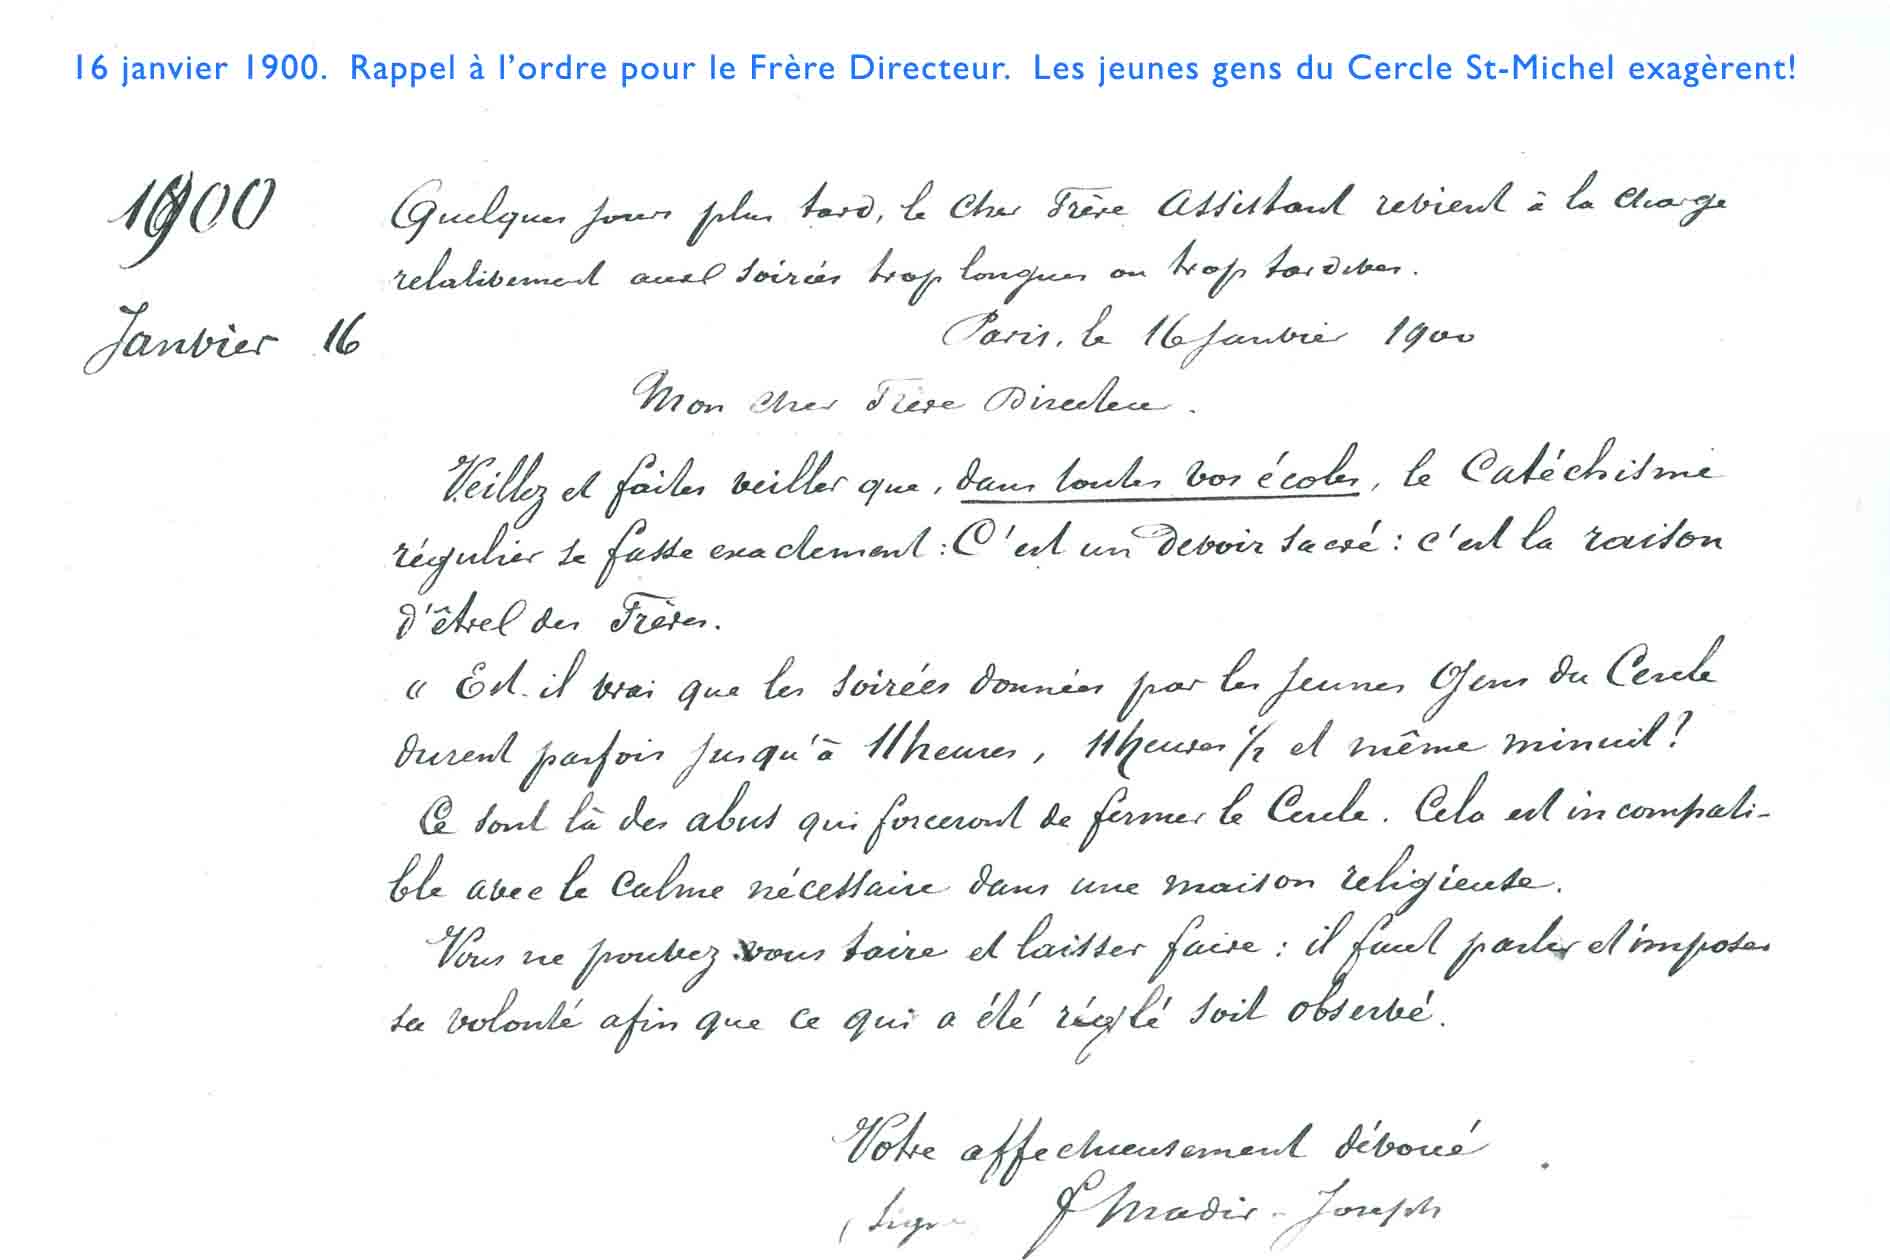 16 janvier 1900. Rappel à l'ordre pour le Frère Directeur. Les jeunes gens du Cercle St-Michel exagèrent!
1900
Quelques jours plus tard, le Cher Frère Assistant revient à la charge
relativement aux soirées trop longues ou trop tardives.
Janvier 16
Paris, le 16 Janvier 1900
Mon cher Frère Directeur.
Veillez et faites veiller que, dans toutes vos écoles, le Catéchisme
régulier se fasse exactement : C'est un Devoir sacré : c'est la raison
d'être des Frères.
" Est-il vrai que les soirées données par les Jeunes Gens du Cercle
durent parfois jusqu'à 11 heures, 11 heures 1/2 et même minuit ?
Ce sont là des abus qui forceront de fermer le Cercle. Cela est incompati-
ble avec le calme nécessaire dans une maison religieuse.
Vous ne pouvez vous taire et laisser faire : il faut parler et imposer
sa volonté afin que ce qui a été réglé soit observé.
Votre affectueusement dévoué
(Signé F Madir-Joseph